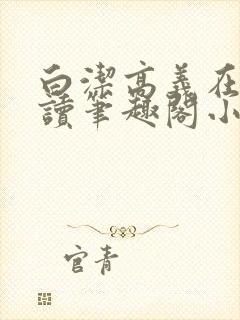 白潔高義在
讀筆趣閣小
官青